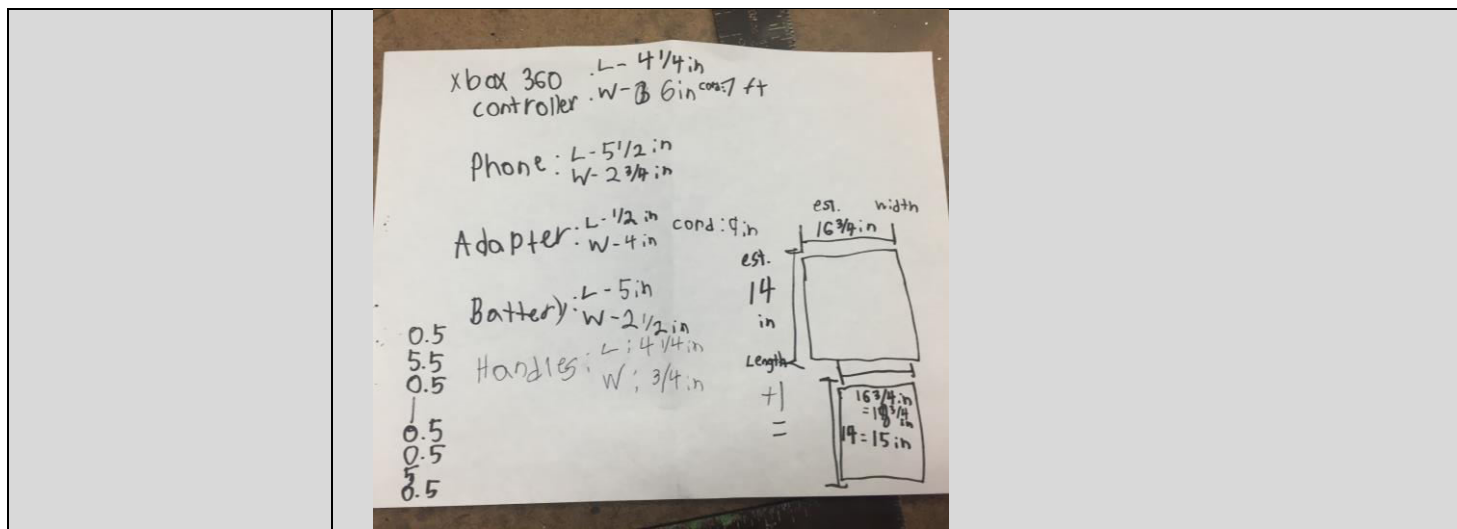 xbox 360
controller
. L- 4 1/4 in
. W- 6 in cord: 7 ft
Phone: L- 5 1/2 in
W- 2 3/4 in
Adapter: L- 1/2 in
W- 4 in
cond: 9 in
Battery: L- 5 in
W- 2 1/2 in
Handles: L: 4 1/4 in
W: 3/4 in
0.5
5.5
0.5
0.5
0.5
5
0.5
est. width
16 3/4 in
est.
14
in
Length
+1
=
16 3/4 in
14 = 15 in